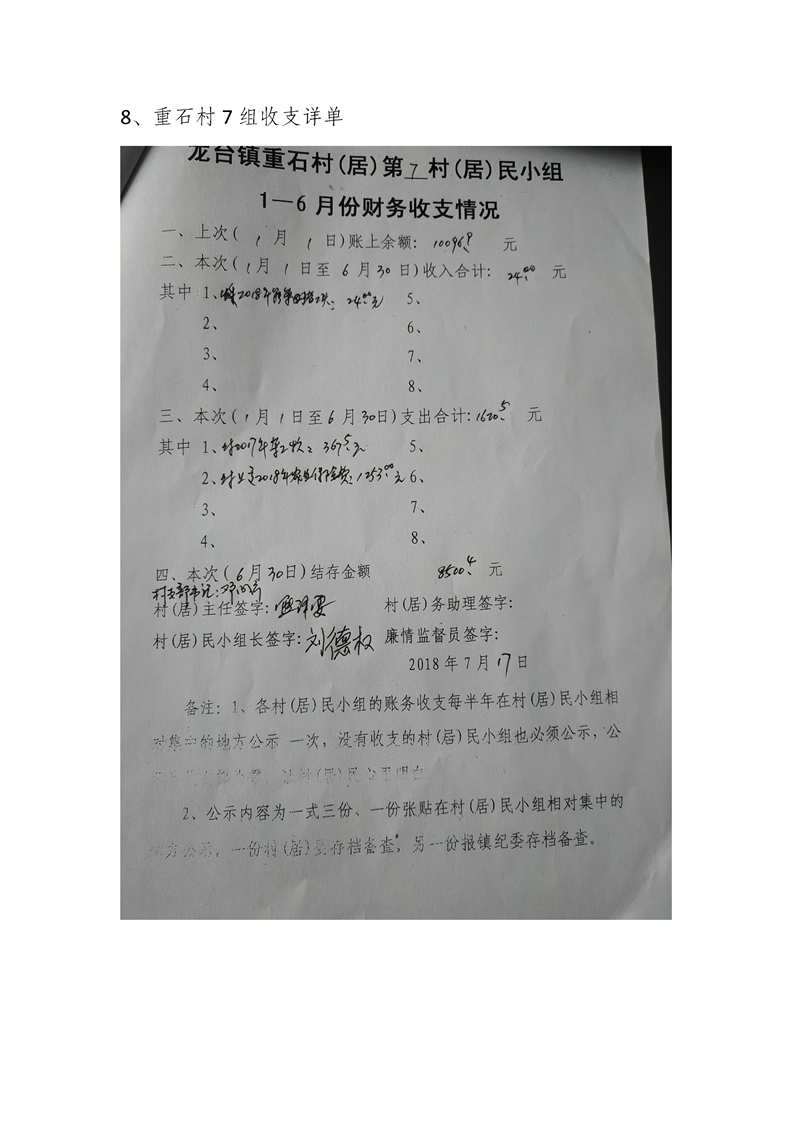 8、重石村 7 组收支详单
龙台镇重石村(居)第7村(居)民小组
1—6月份财务收支情况
一、上次( 1 月 1 日)账上余额: 10096.9 元
二、本次(1月 1 日至 6 月30 日)收入合计: 24.00 元
其中 1、2018年 24.00元 5、
2、 6、
3、 7、
4、 8、
三、本次(1月1日至6月30日)支出合计:1620.5 元
其中 1、付2017年第二次: 367.5元 5、
2、付 2018年农业保险费:1253.00元 6、
3、 7、
4、 8、
四、本次( 6月30日)结存金额 8500.4 元
村支部书记:
村(居)主任签字: 村(居)务助理签字:
村(居)民小组长签字:刘德权 廉情监督员签字:
2018年7月17日
备注: 1、各村(居)民小组的账务收支每半年在村(居)民小组相
对集中的地方公示 一次, 没有收支的村(居)民小组也必须公示, 公
2、公示内容为一式三份、一份张贴在村(居)民小组相对集中的
一份村(居)委存档备查, 另一份报镇纪委存档备查。